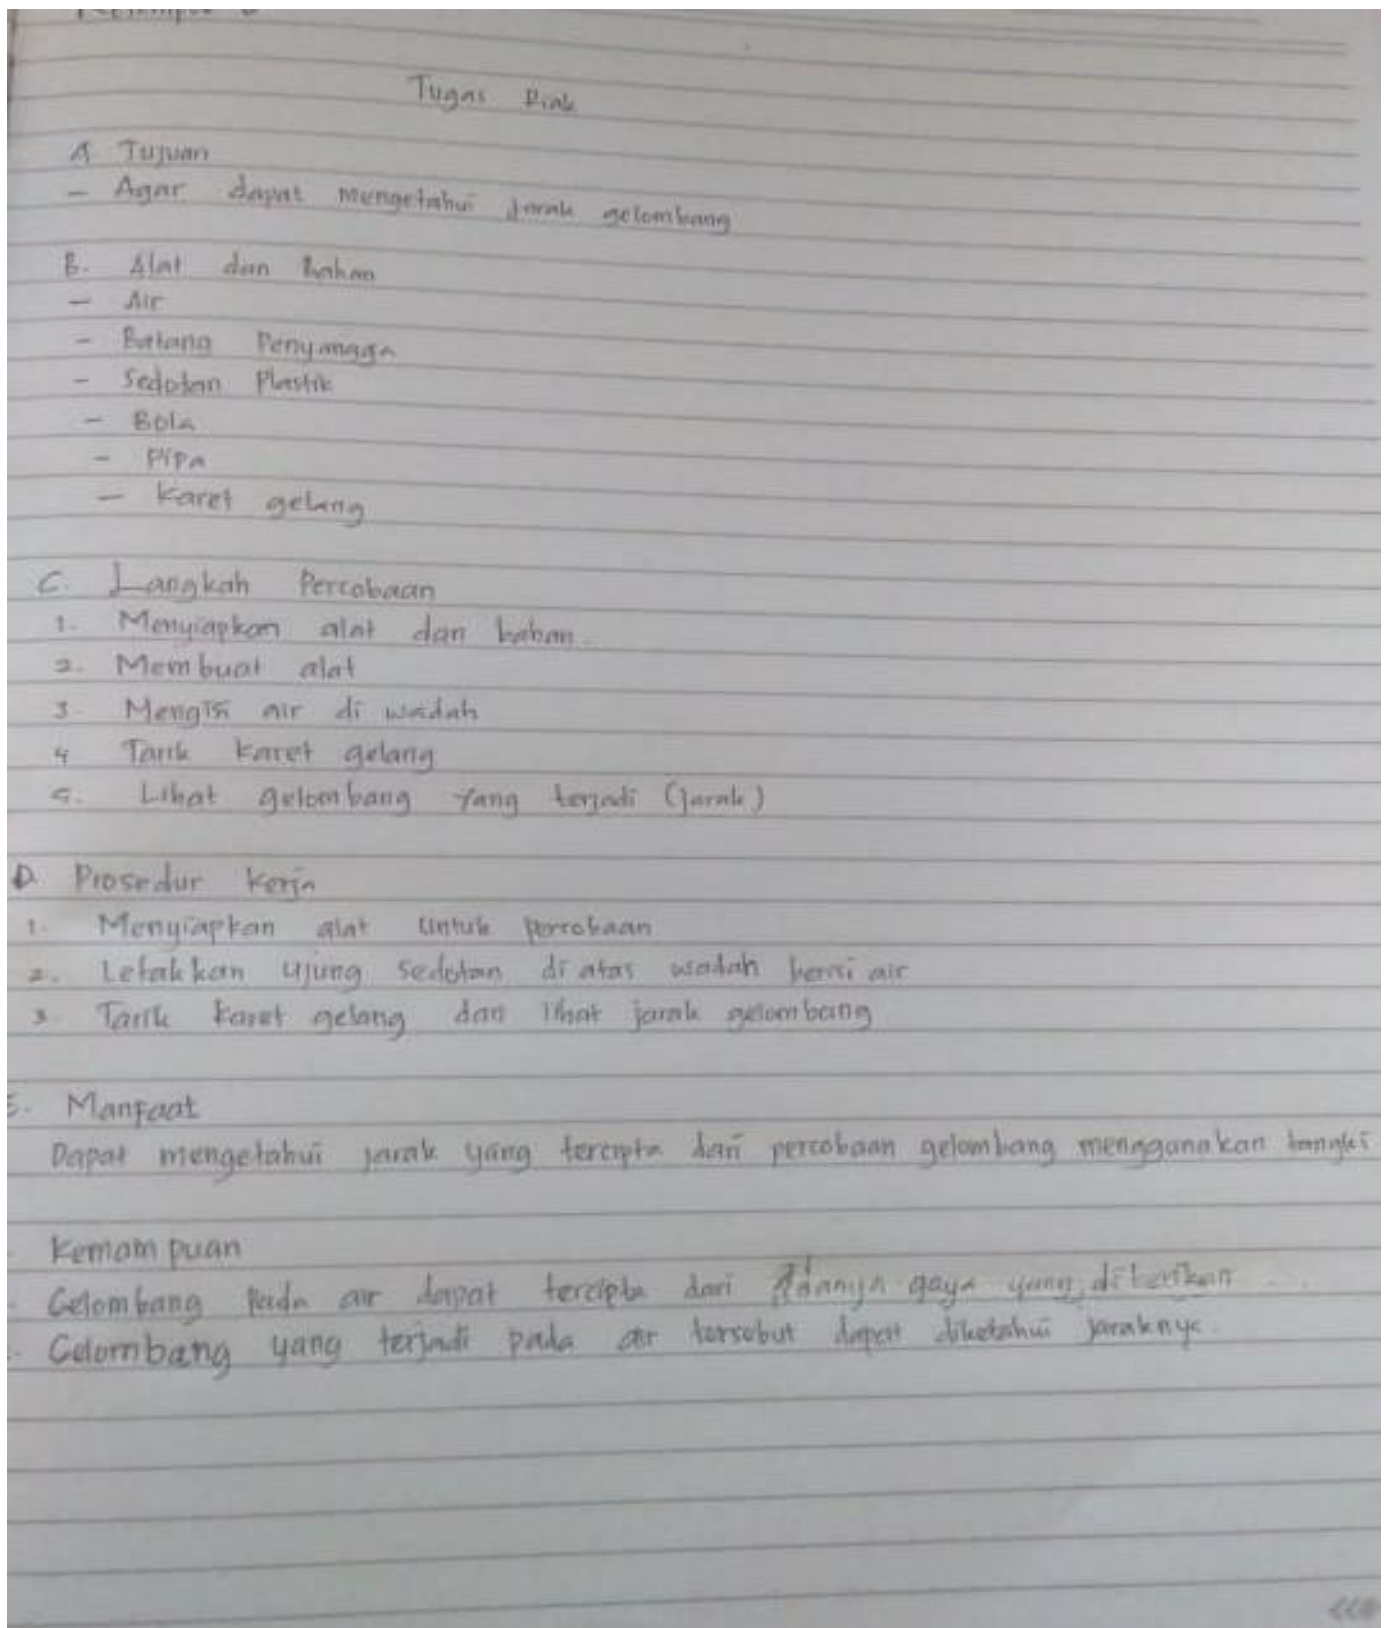 Tugas Riak
A Tujuan
- Agar dapat mengetahui jarak gelombang
B. Alat dan bahan
- Air
- Batang Penyangga
- Sedotan Plastik
- Bola
- Pipa
- Karet gelang
C. Langkah Percobaan
1. Menyiapkan alat dan bahan.
2. Membuat alat
3. Mengisi air di wadah
4 Tarik karet gelang
5. Lihat gelombang yang terjadi (jarak)
D. Prosedur Kerja
1. Menyiapkan alat untuk percobaan
2. Letakkan ujung sedotan di atas wadah berisi air
3 Tarik karet gelang dan lihat jarak gelombang
E. Manfaat
Dapat mengetahui jarak yang tercipta dari percobaan gelombang menggunakan tangki
Kemampuan
- Gelombang pada air dapat tercipta dari Adanya gaya yang diberikan
- Gelombang yang terjadi pada air tersebut dapat diketahui jaraknya.